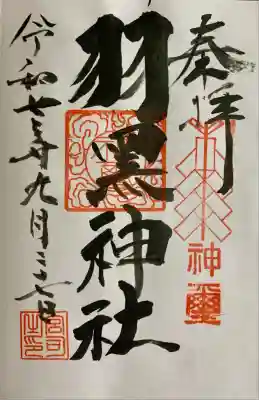 奉拝
神璽
羽黒神社
令和七年九月二十七日